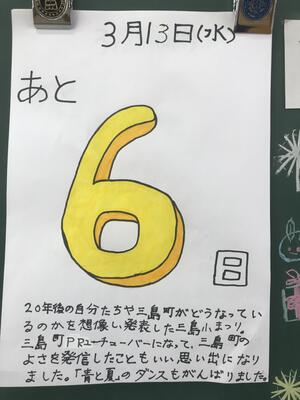 3月13日(水)
あと
6
日
20年後の自分たちや三島町がどうなってい
るのかを想像い発表した三島小まつり。
三島町PRユーチューバーになって、三島町の
よさを発信したこともいい思い出になり
ました。「青と夏」のダンスもがんばりました。